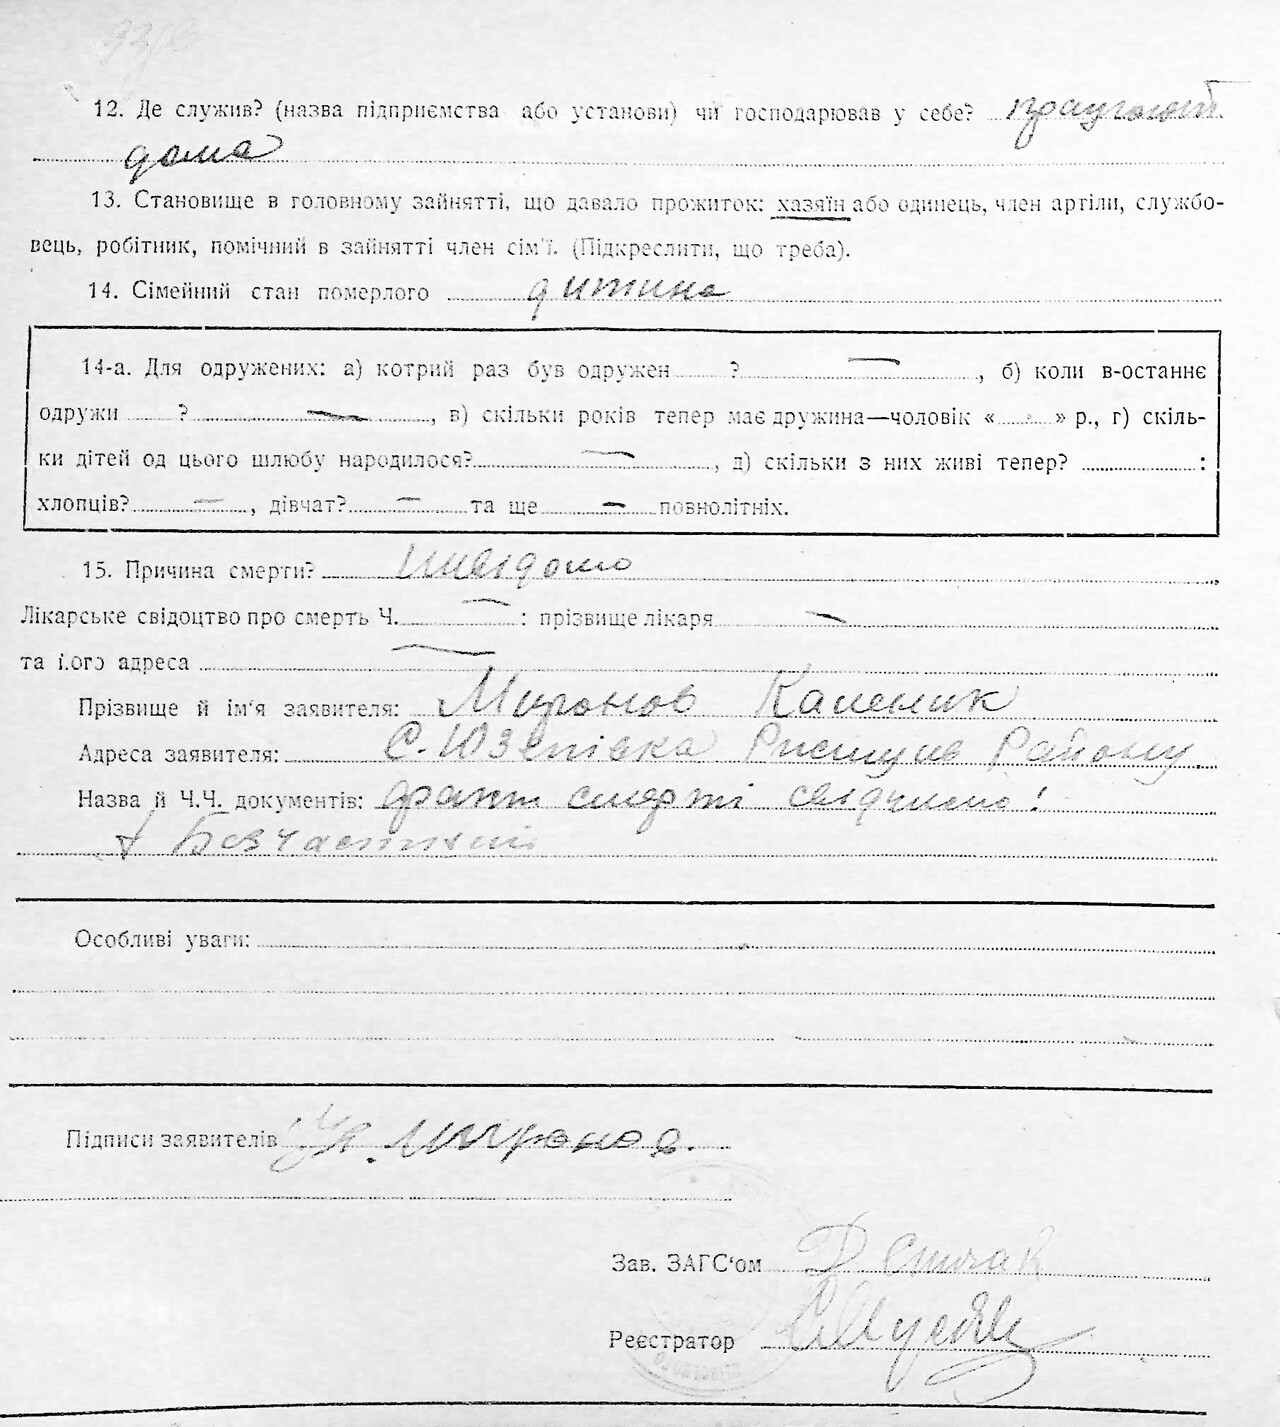 12. Де служив? (назва підприємства або установи) чи господарював у себе? працюют
дома
13. Становище в головному зайнятті, що давало прожиток: хазяїн або одинець, член артіли, службо-
вець, робітник, помічний в зайнятті член сім'ї. (Підкреслити, що треба).
14. Сімейний стан померлого дитина
14-а. Для одружених: а) котрий раз був одружен ? —, б) коли в-останнє
одружи ? —, в) скільки років тепер має дружина—чоловік « » р., г) скіль-
ки дітей од цього шлюбу народилося? —, д) скільки з них живі тепер? :
хлопців? —, дівчат? — та ще — повнолітніх.
15. Причина смерти? невідомо
Лікарське свідоцтво про смерть Ч. — : прізвище лікаря —
та його адреса —
Прізвище й ім'я заявителя: Миронов Каленик
Адреса заявителя: С. Юзепівка Району
Назва й Ч.Ч. документів: факт смерті свідчимо!
Особливі уваги:
Підписи заявителів Миронов.
Зав. ЗАГС'ом
Реєстратор